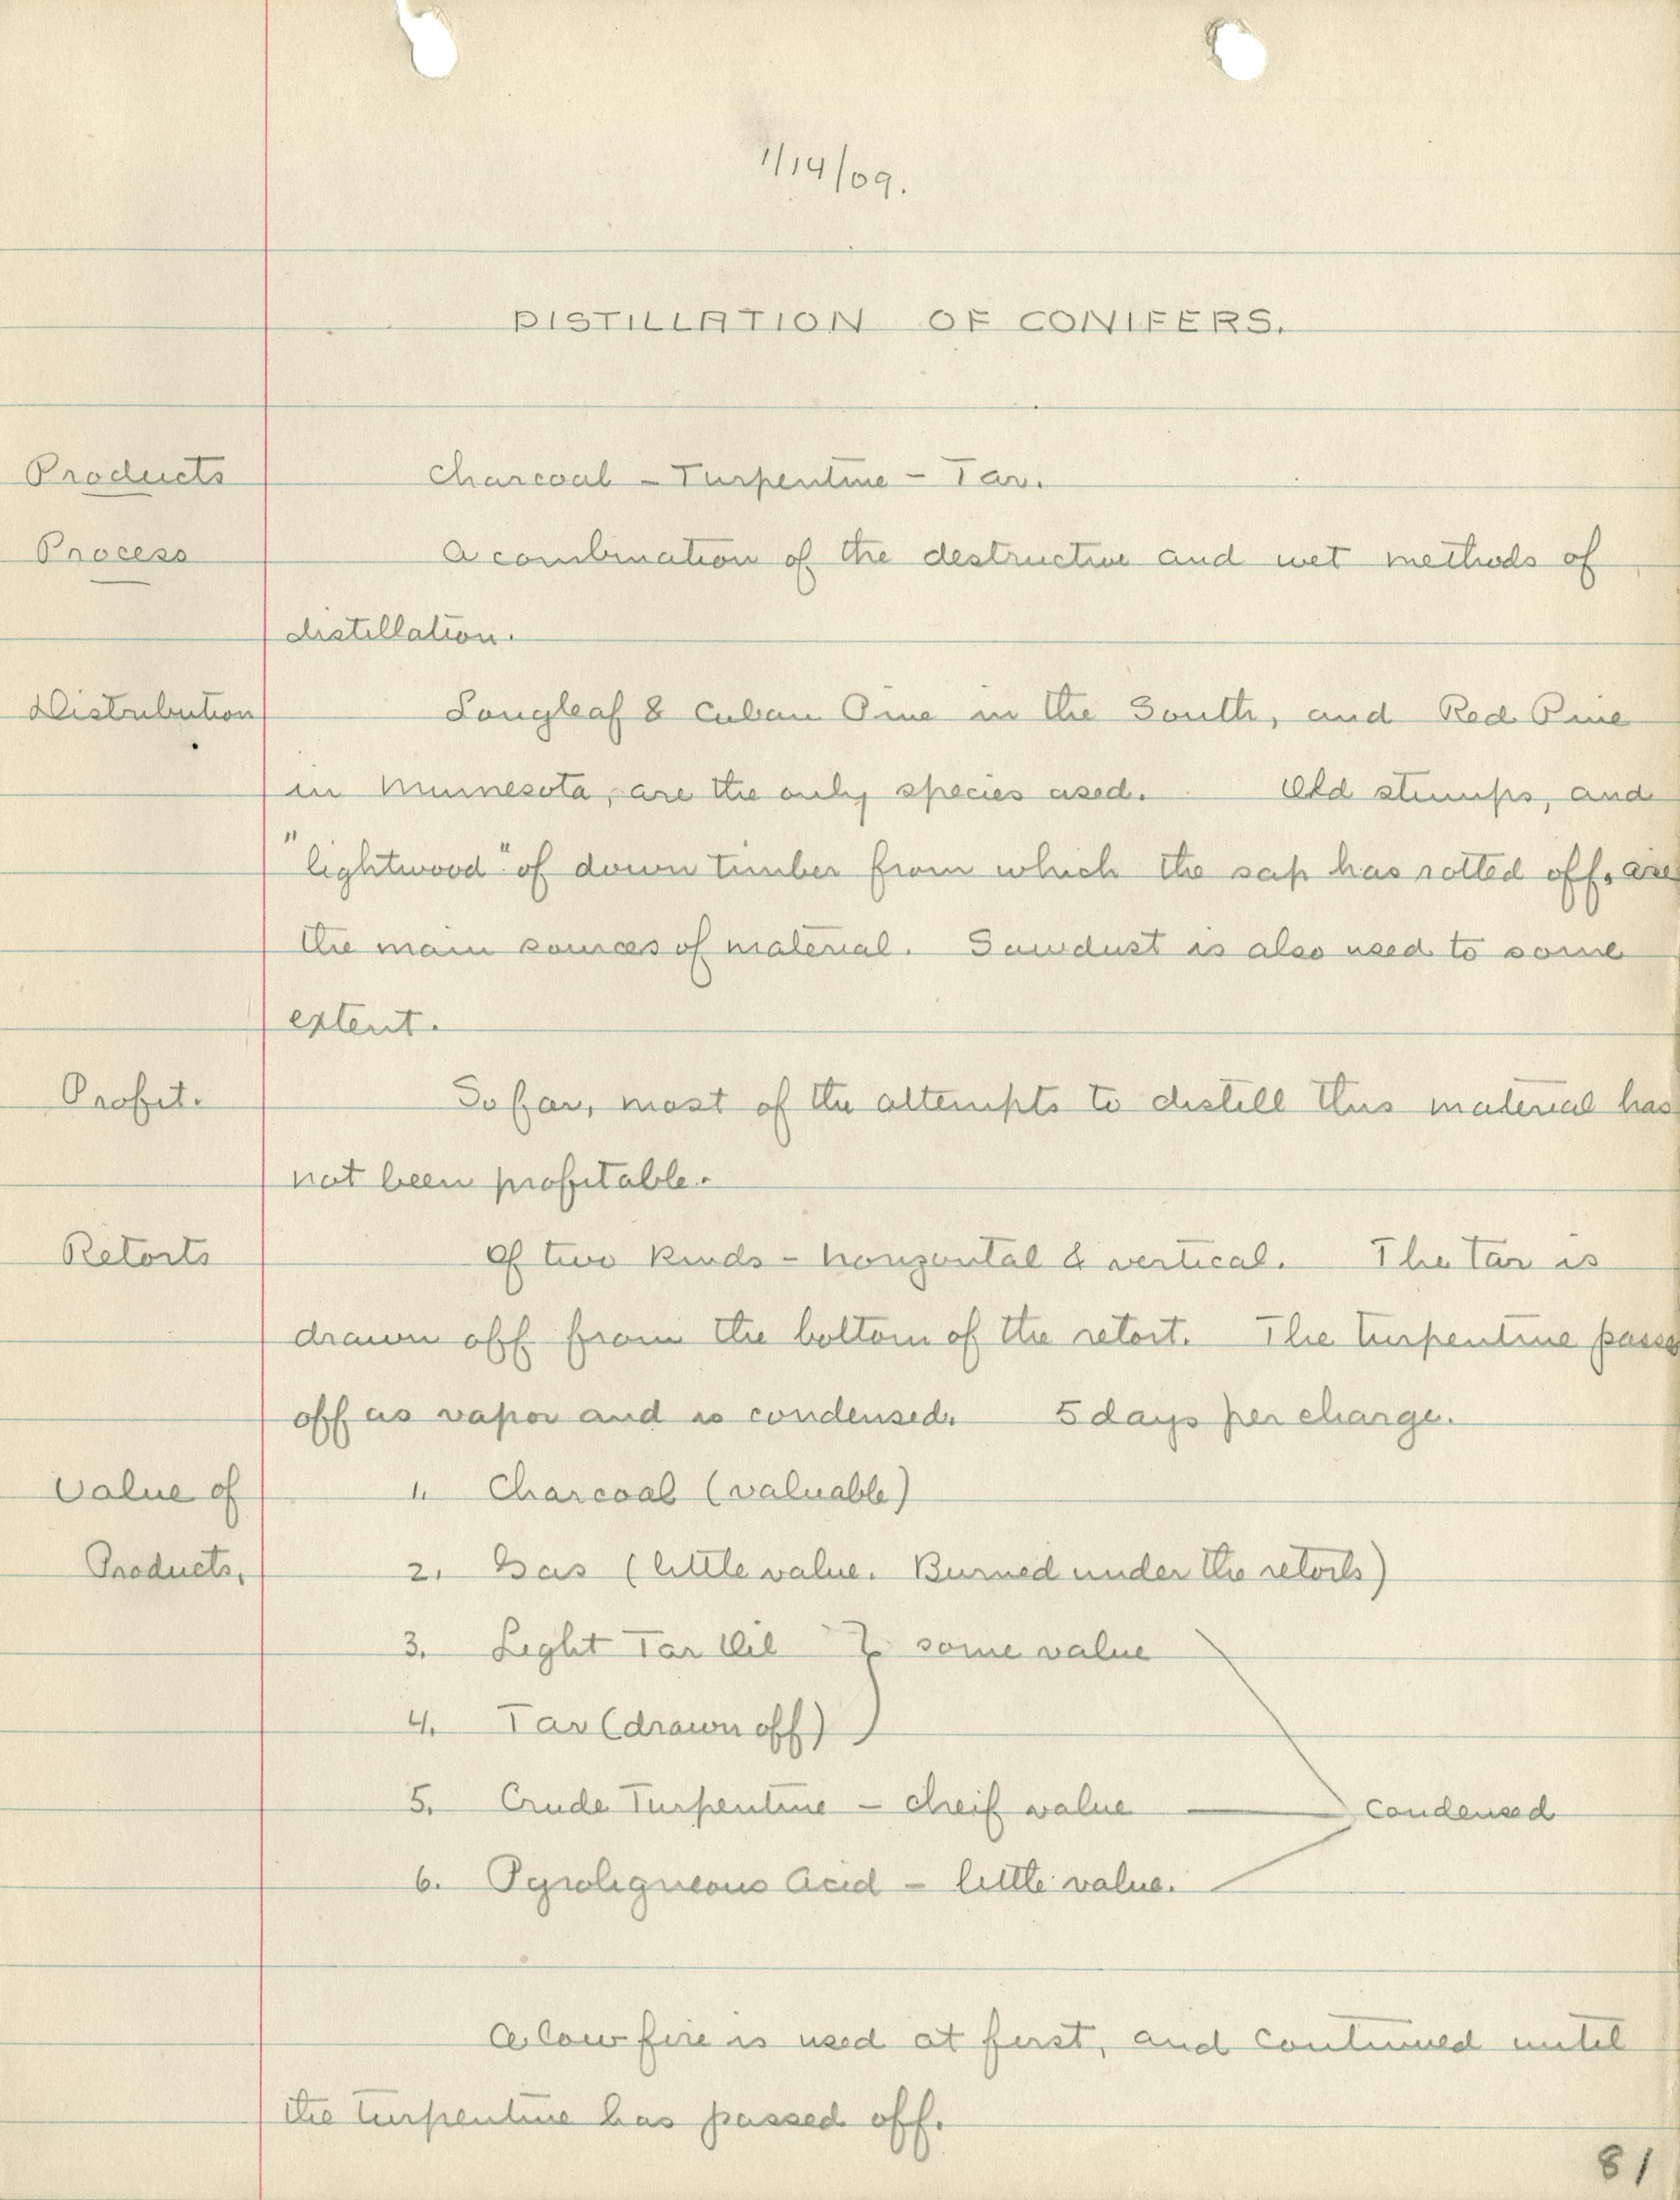 1/14/09.
DISTILLATION OF CONIFERS.
Products Charcoal - Turpentine - Tar.
Process A combination of the destructive and wet methods of
distillation.
Distribution Longleaf & Cuban Pine in the South, and Red Pine
in Minnesota, are the only species used. Old stumps, and
"lightwood" of down timber from which the sap has rotted off, are
the main sources of material. Sawdust is also used to some
extent.
Profit. So far, most of the attempts to distill this material has
not been profitable.
Retorts Of two kinds - horizontal & vertical. The Tar is
drawn off from the bottom of the retort. The turpentine passes
off as vapor and is condensed. 5 days per charge.
Value of 1. Charcoal (valuable)
Products, 2. Gas (little value. Burned under the retorts)
3. Light Tar Oil } some value
4. Tar (drawn off)
5. Crude Turpentine - cheif value Condensed
6. Pyroligneous Acid - little value.
A low fire is used at first, and continued until
the turpentine has passed off.
81